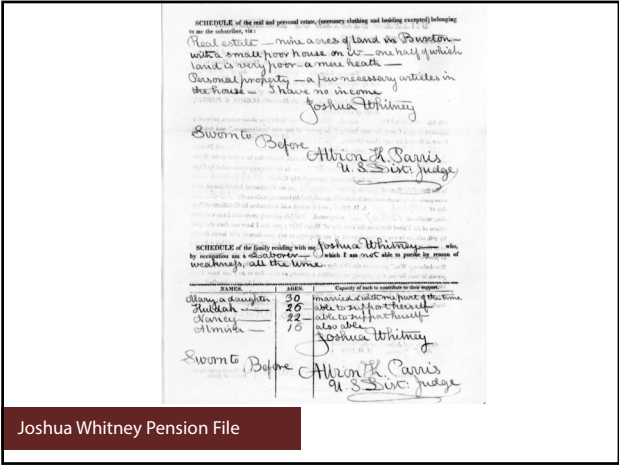 SCHEDULE of the real and personal estate, (necessary clothing and bedding excepted) belonging
to me the subscriber, viz:
Real estate — nine acres of land in Buxton—
with a small poor house on it — one half of which
land is very poor - a mere heath —
Personal property — a few necessary articles in
the house — I have no income
Joshua Whitney
Sworn to
Before
Albion K. Parris
U. S. Dist: Judge
SCHEDULE of the family residing with me, Joshua Whitney — who,
by occupation am a Laborer — which I am not able to pursue by reason of
weakness, all the time
NAMES. AGES. Capacity of each to contribute to their support.
Mary, a daughter 30 married & with me part of the time
Huldah — 26 able to support herself
Nancy — 22 — able to support herself
Almira — 16 also able
Joshua Whitney
Sworn to Before
Albion K. Parris
U. S. Dist: Judge
Joshua Whitney Pension File